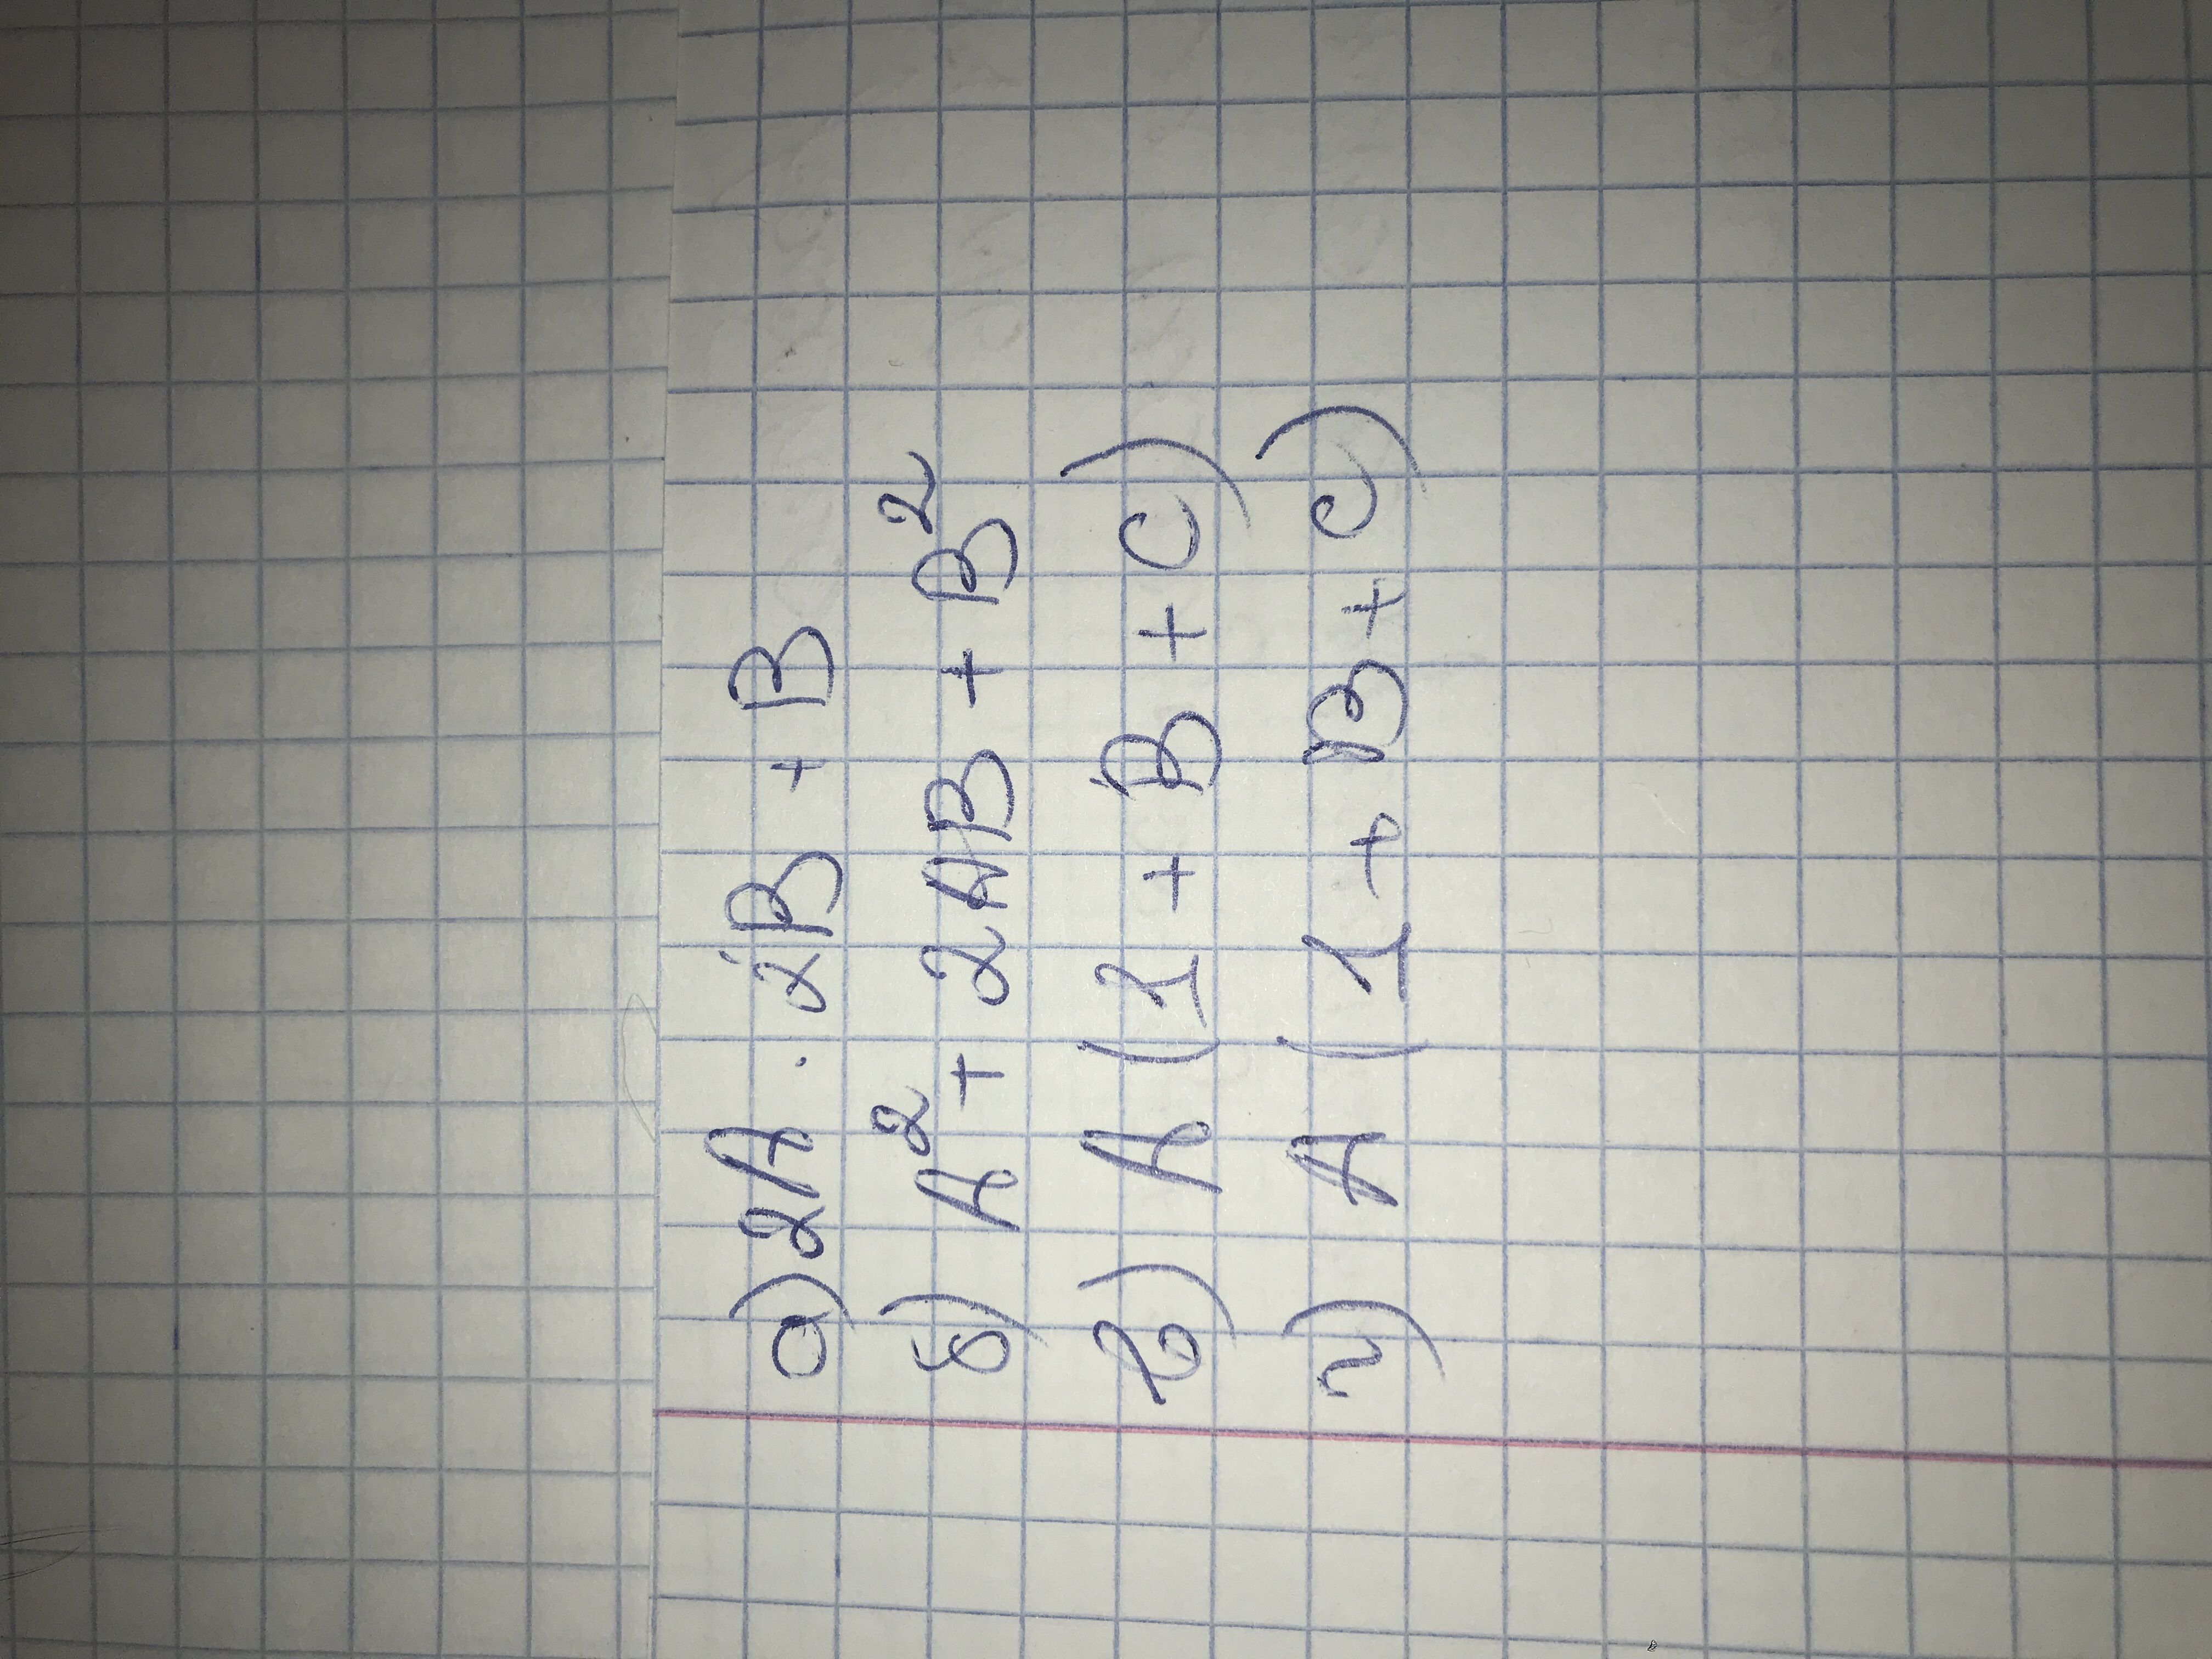 а) 2A · 2B + B
б) A² + 2AB + B²
в) A (1 + B + C)
г) A (1 + B + C)